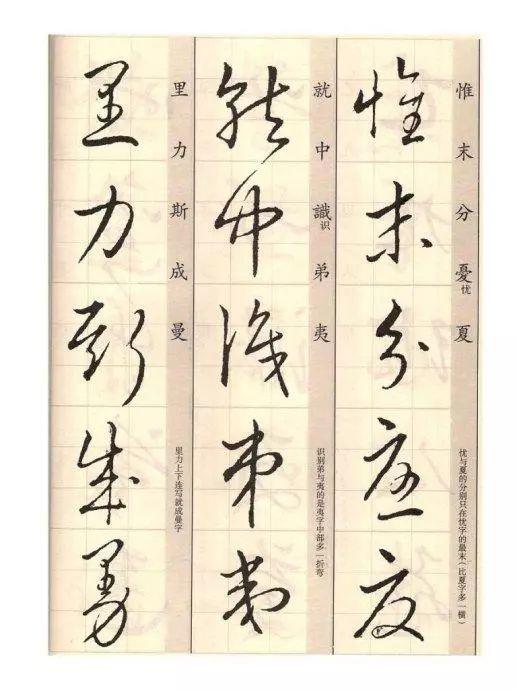 惟末分憂夏
惟末分憂忧夏
忧与夏的分别只在忧字的最末（比夏字多一横）
就中識弟夷
就中識识弟夷
识别弟与夷的是夷字中部多一折弯
里力斯成曼
里力斯成曼
里力上下连写就成曼字